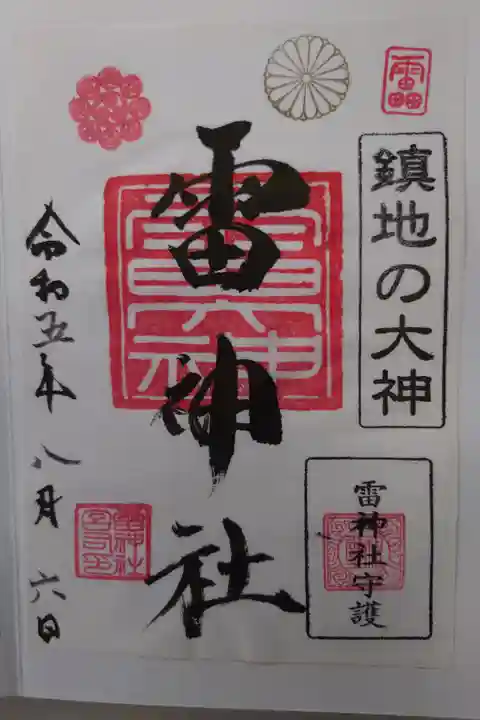 鎮地の大神
雷神社守護
雷神社
令和五年 八月 六日